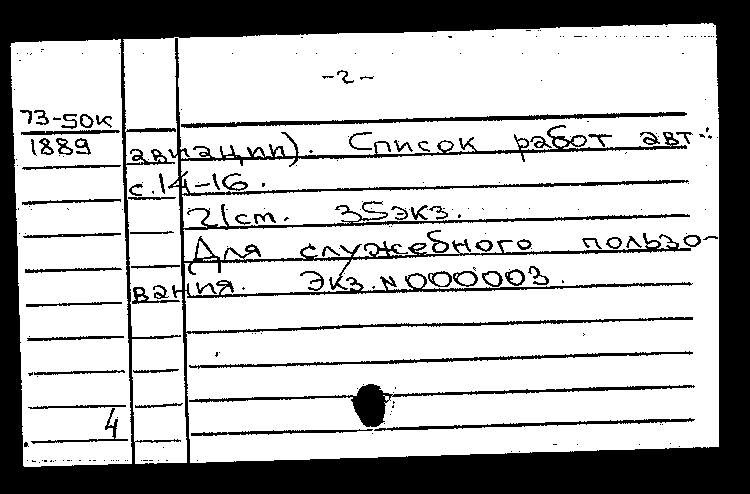 -2-
73-50к
1889
авиации). Список работ авт.:
с.14-16.
21см. 35экз.
Для служебного пользо-
вания. Экз.N000003.
4